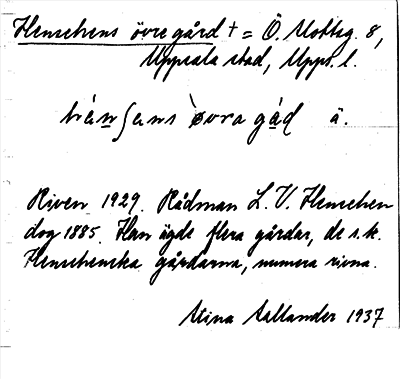 Henschens övre gård † = Ö. Slottsg. 8,
Uppsala stad, Uppl. l.
hä́nʃans ö̀vra gá̊d ä.
Riven 1929. Rådman L. V. Henschen
dog 1885. Han ägde flera gårdar, de s.k.
Henschenska gårdarna, numera rivna.
Stina Sallander 1937